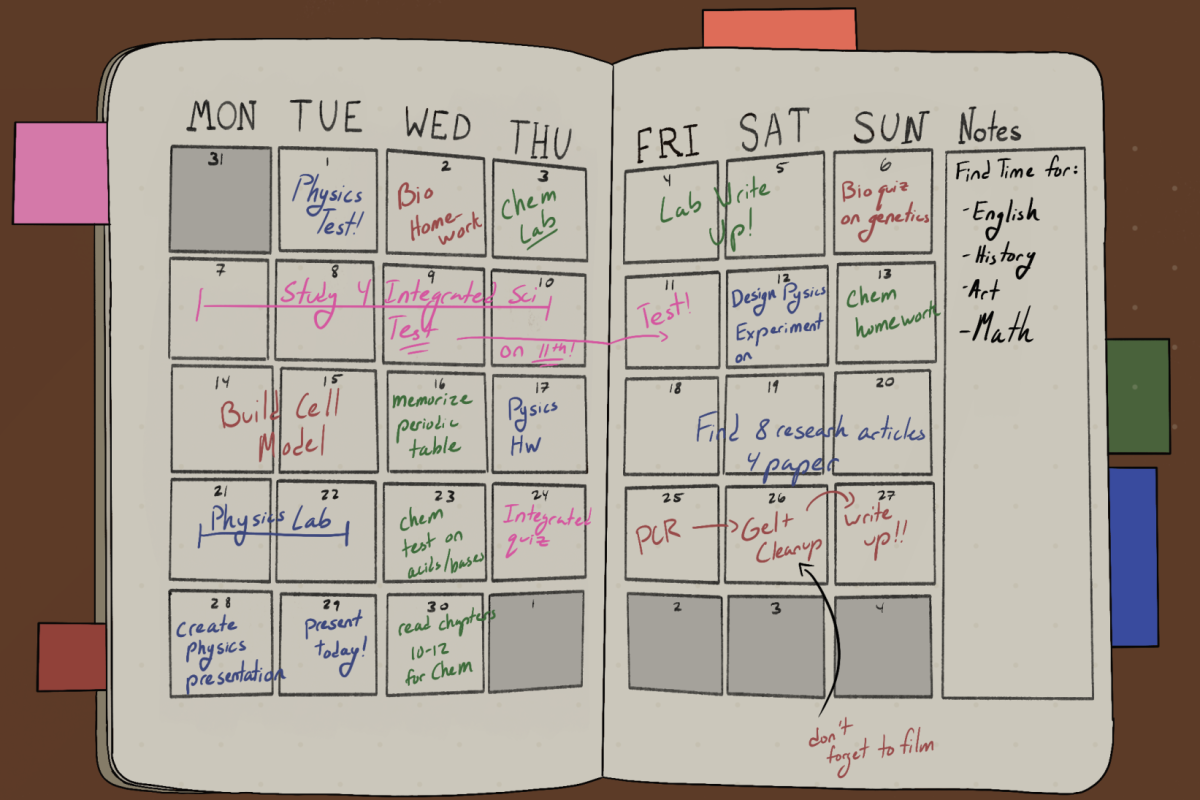 MON TUE WED THU FRI SAT SUN Notes
31 1 2 3 4 5 6
Physics
Test!
Bio
Home-
work
Chem
Lab
Lab Write
Up!
Bio quiz
on genetics
Find Time for:
-English
-History
-Art
-Math
7 8 9 10 11 12 13
Study 4 Integrated Sci
Test
on 11th!
Test!
Design Pysics
Experiment
on
Chem
homework
14 15 16 17 18 19 20
Build Cell
Model
memorize
periodic
table
Pysics
HW
Find 8 reseash articles
4 paper
21 22 23 24 25 26 27
Physics Lab
chem
test on
acids/bases
Integrated
quiz
PCR
Gel+
Cleanup
write
up!!
28 29 30 1 2 3 4
create
physics
presentation
present
today!
read chapters
10-12
for Chem
don't
forget to film